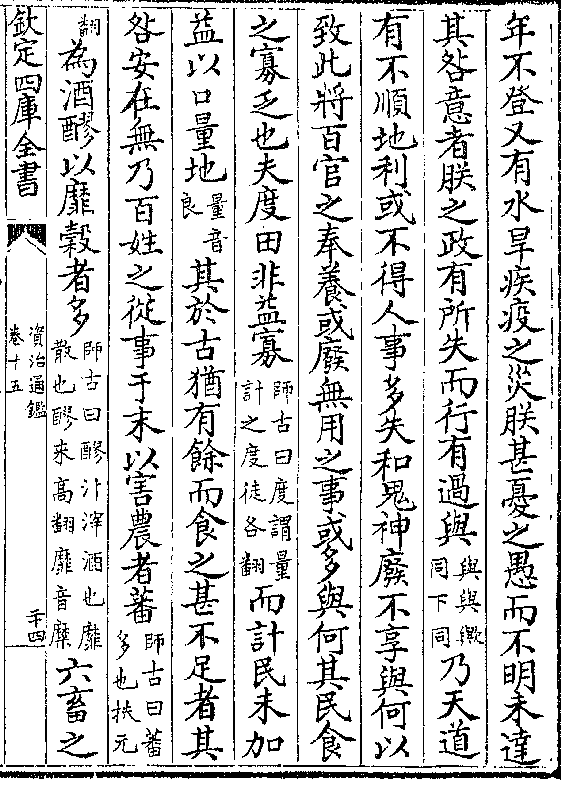 年不登又有水旱疾疫之災朕甚憂之愚而不明未達
其咎意者朕之政有所失而行有過與與與歟同下同乃天道
有不順地利或不得人事多失和鬼神廢不享與何以
致此將百官之奉養或廢無用之事或多與何其民食
之寡乏也夫度田非益寡師古曰度謂量計之度徒各翻而計民未加
益以口量地量音良其於古猶有餘而食之甚不足者其
咎安在無乃百姓之從事于末以害農者蕃師古曰蕃多也扶元
翻為酒醪以靡穀者多師古曰醪汁滓酒也靡散也醪來高翻靡音糜六畜之
欽定四庫全書
資治通鑑
卷十五
二十四